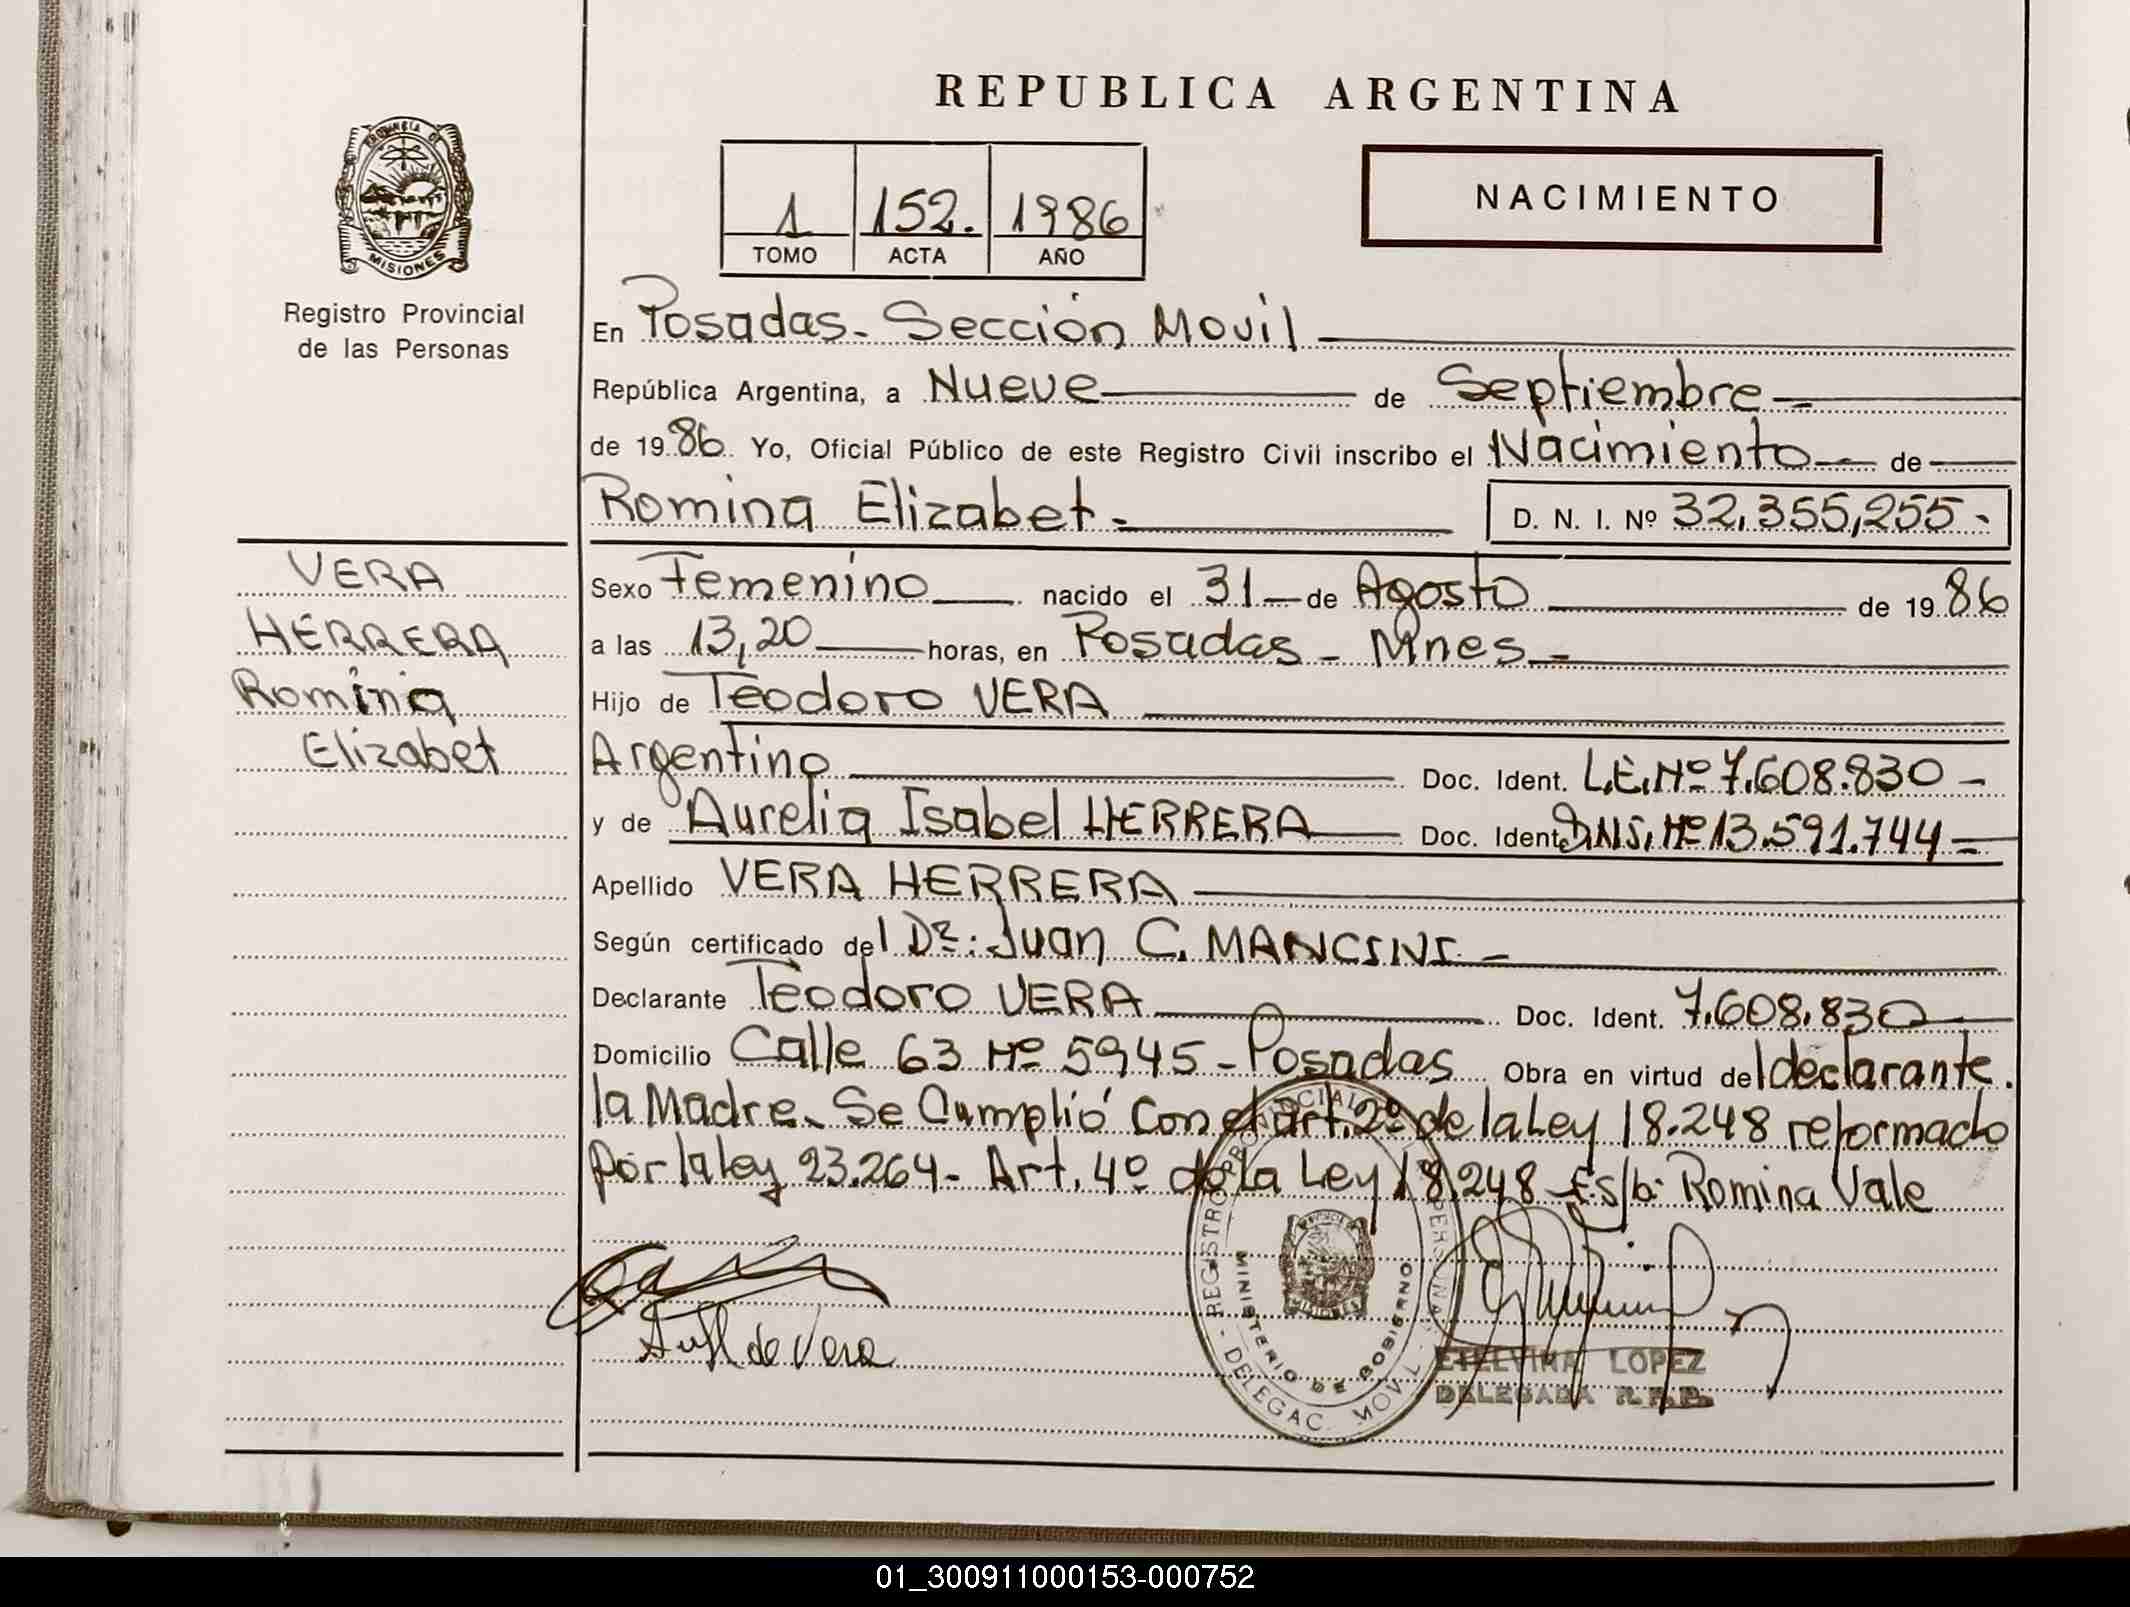 REPUBLICA ARGENTINA
PROVINCIA DE
MISIONES
Registro Provincial
de las Personas
1 152. 1986
TOMO ACTA AÑO
NACIMIENTO
En Posadas - Sección Movil
República Argentina, a Nueve de Septiembre
de 19 86 Yo, Oficial Público de este Registro Civil inscribo el Nacimiento de
Romina Elizabet - D. N. I. Nº 32.355,255 -
VERA
HERRERA
Romina
Elizabet
Sexo Femenino nacido el 31 de Agosto de 19 86
a las 13,20 horas, en Posadas - Mnes -
Hijo de Teodoro VERA
Argentino Doc. Ident. L.E. Nº 7.608.830 -
y de Aurelia Isabel HERRERA Doc. Ident. D.N.I. Nº 13.591.744 -
Apellido VERA HERRERA
Según certificado del Dr: Juan C. MANCINI. -
Declarante Teodoro VERA Doc. Ident. 7.608.830
Domicilio Calle 63 Nº 5945 - Posadas Obra en virtud del declarante.
la Madre. Se Cumplió con el art. 2º de la Ley 18.248 reformado
por la ley 23.264 - Art. 4º de la Ley 18.248 Es/b: Romina Vale
de Vera
REGISTRO PROVINCIAL PERSONAS
MINISTERIO DE GOBIERNO
MISIONES
DELEGAC. MOVIL
ETELVINA LOPEZ
DELEGADA R.P.P.
01_300911000153-000752